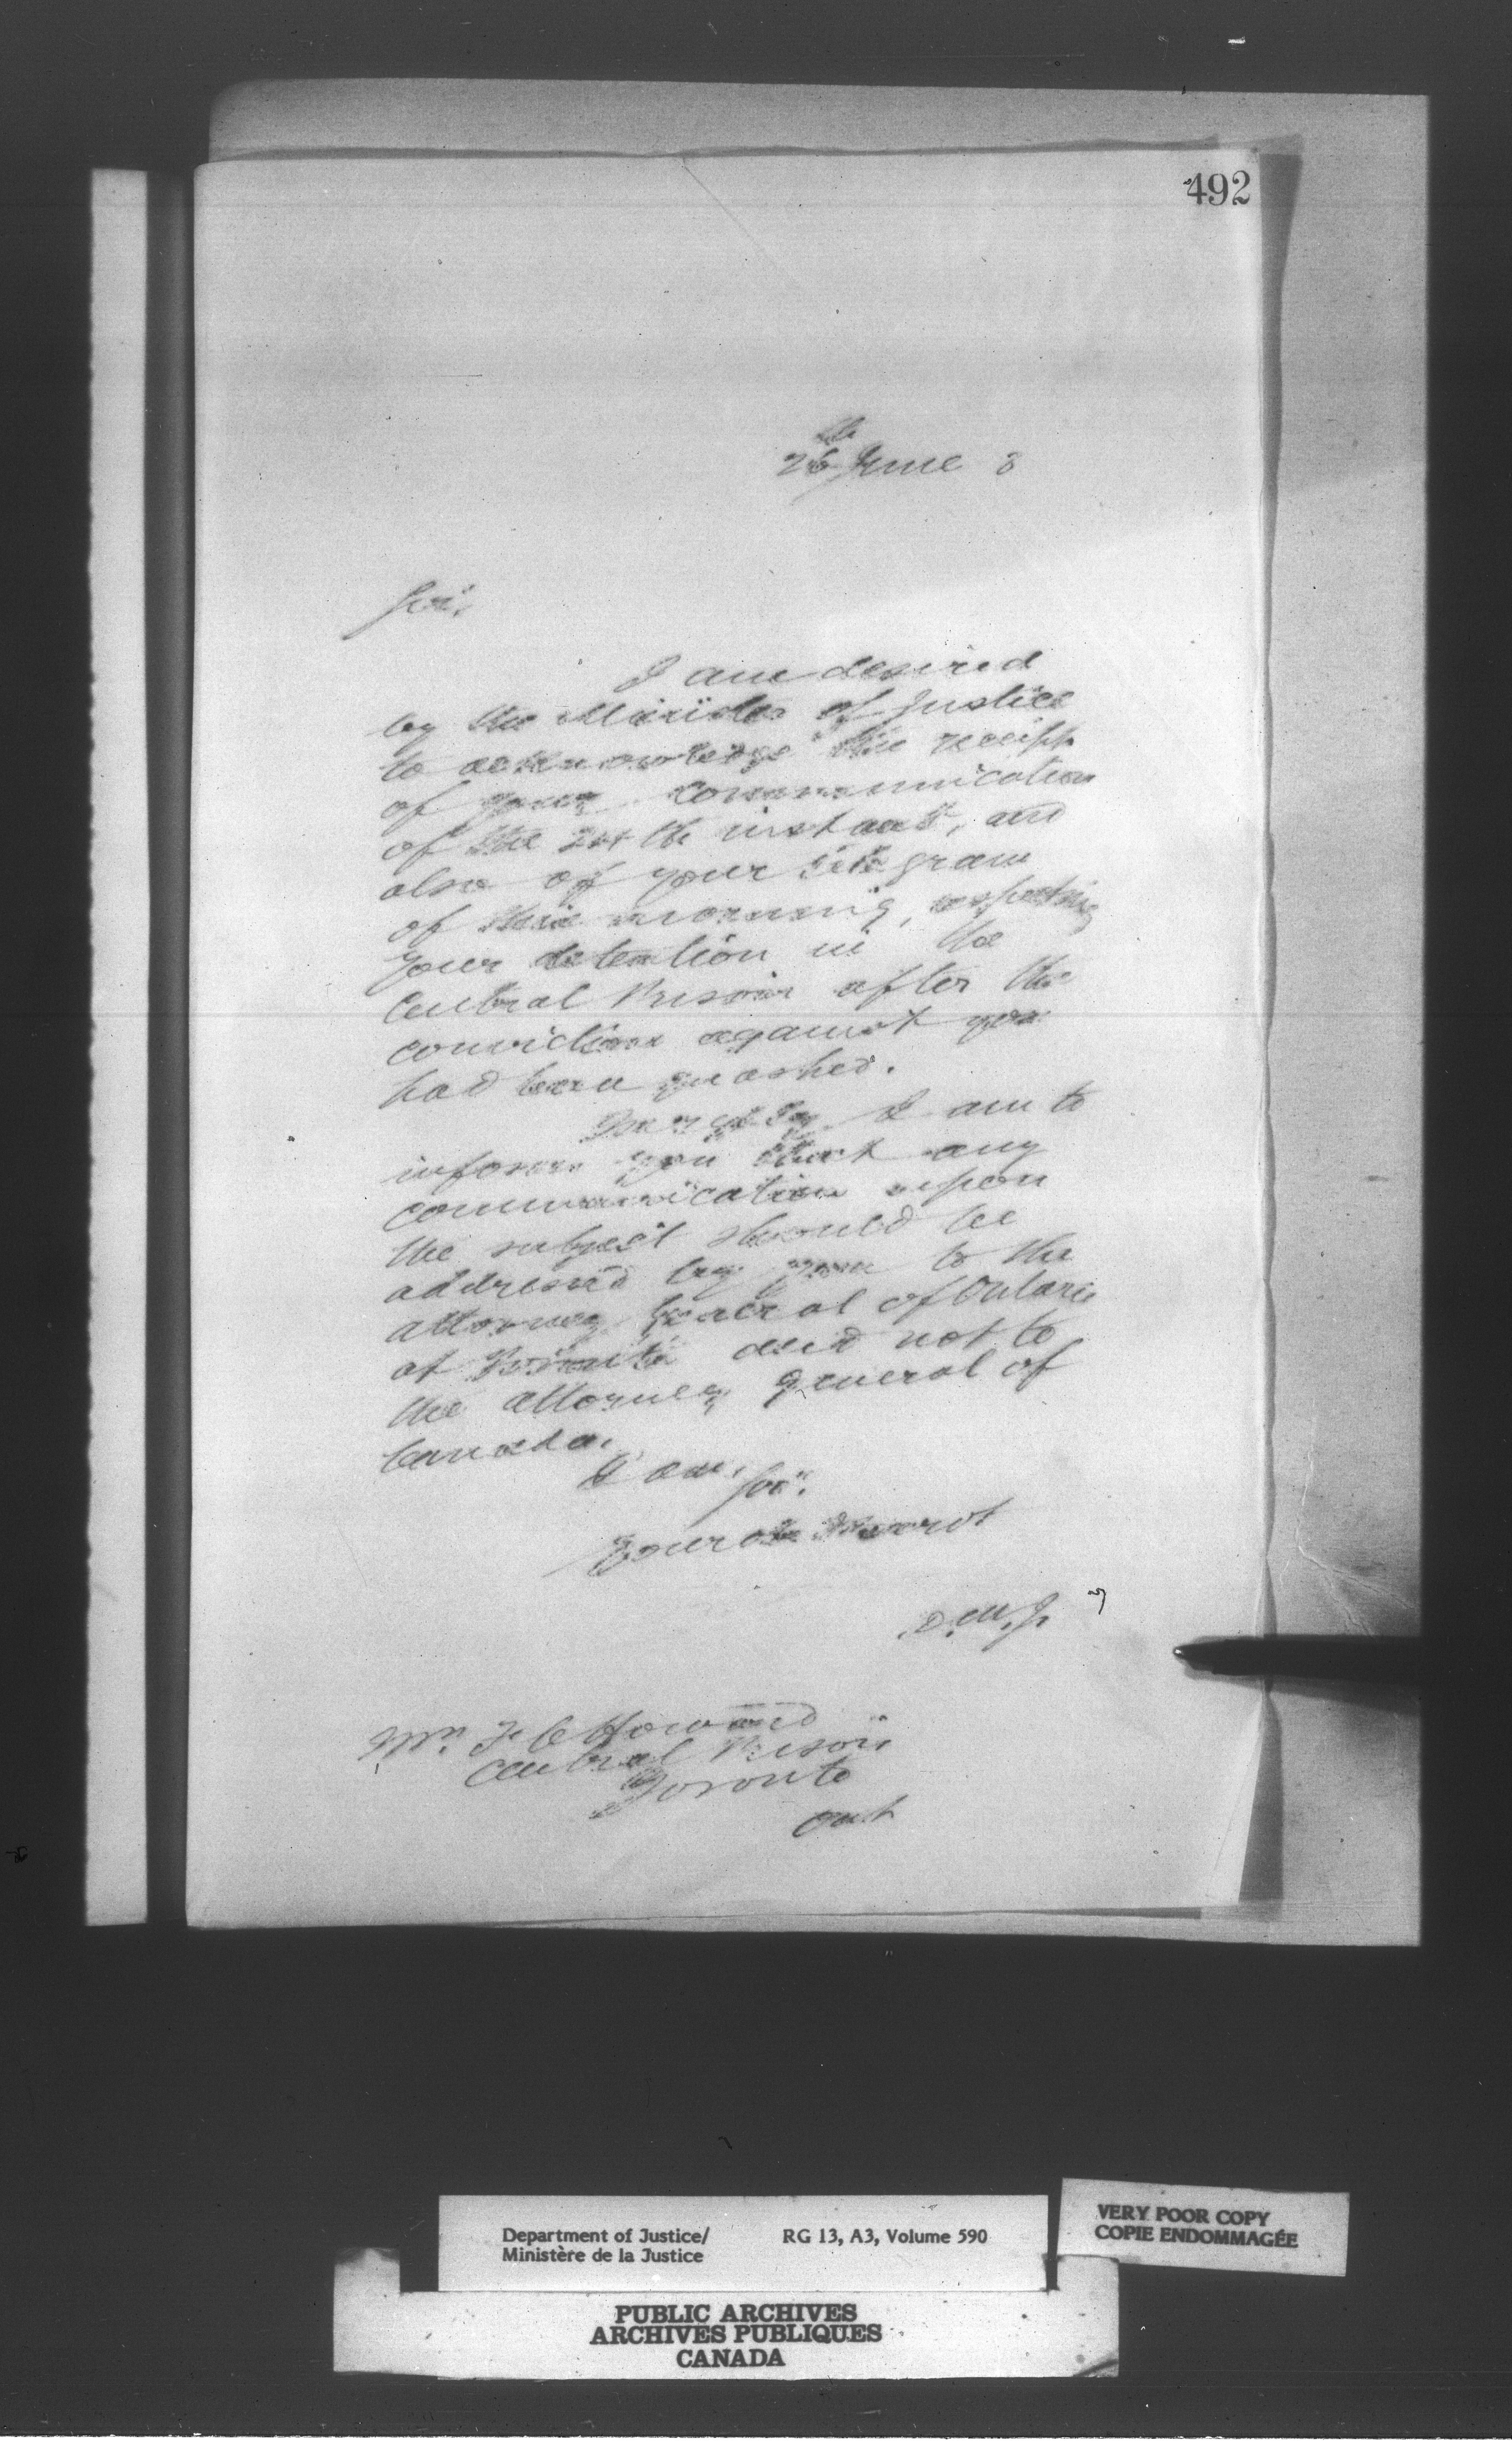 492
26th June 8
Sir,
I am desired
by the Minister of Justice
to acknowledge the receipt
of your communication
of the 24th instant, and
also of your telegram
of this morning, respecting
your detention in the
Central Prison after the
conviction against you
had been quashed.
In reply I am to
inform you that any
communication upon
the subject should be
addressed by you to the
Attorney General of Ontario
at Toronto and not to
the Attorney General of
Canada.
I am, Sir,
Your ob Servt
D.M.J.
Mr. F C Howard
Central Prison
Toronto
Ont
Department of Justice/
Ministère de la Justice
RG 13, A3, Volume 590
VERY POOR COPY
COPIE ENDOMMAGÉE
PUBLIC ARCHIVES
ARCHIVES PUBLIQUES
CANADA